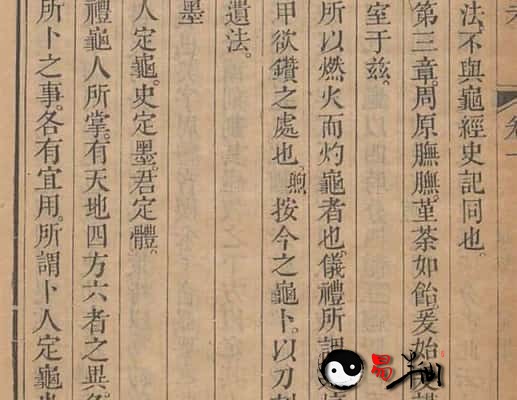 卷一
法。不與龜經史記同也。
第三章。周原膴膴。堇荼如飴。爰始
室于茲。
所以燃火而灼龜者也。儀禮所謂
甲欲鑽之處也 煦 按今之龜卜。以刀刻
遺法。
墨
人定龜。史定墨。君定體。
禮龜人所掌。有天地四方六者之異。各
所卜之事。各有宜用。所謂卜人定龜
易